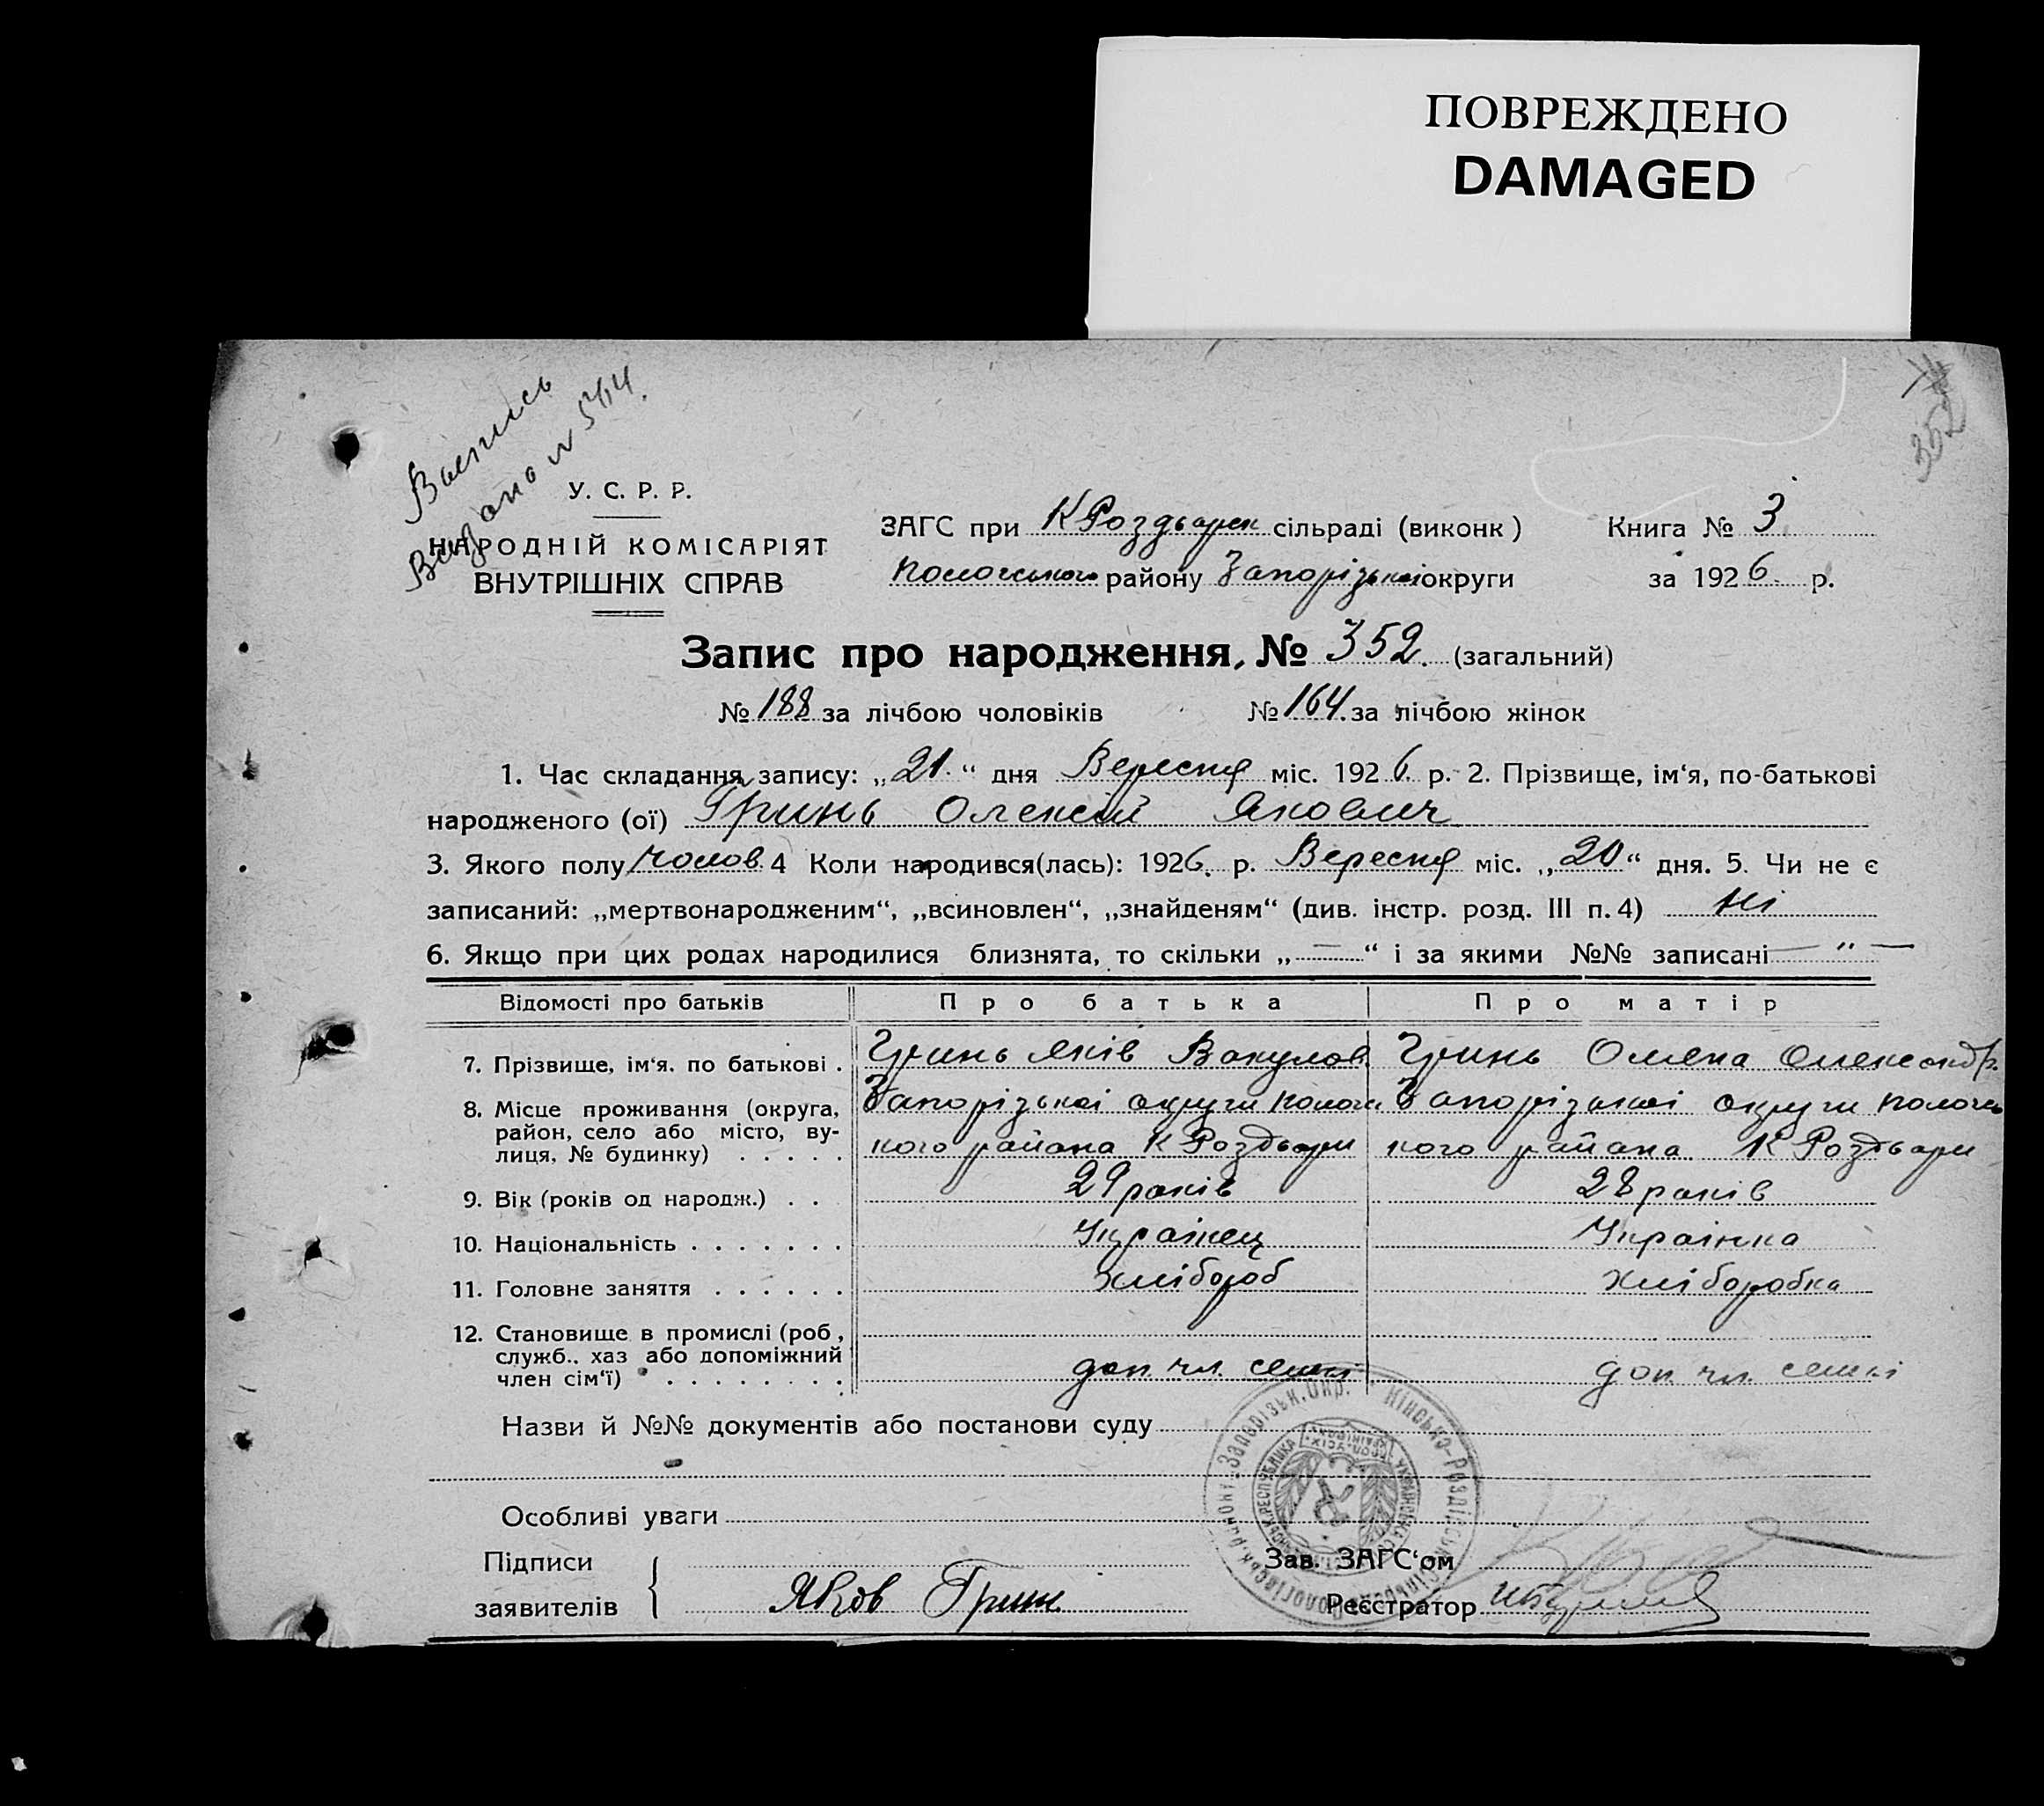 ПОВРЕЖДЕНО
DAMAGED
352
Выпись
Выдана N 544.
У. С. Р. Р.
НАРОДНІЙ КОМІСАРІЯТ
ВНУТРІШНІХ СПРАВ
ЗАГС при К Роздъарск сільраді (виконк) Книга № 3
Пологського району Запорізькоі округи за 1926 р.
Запис про народження, № 352. (загальний)
№ 188 за лічбою чоловіків № 164. за лічбою жінок
1. Час складання запису: „21.“ дня Вересня міс. 1926. р. 2. Прізвище, ім‘я, по-батькові
народженого (ої) Гринь Олексій Якович
3. Якого полу чолов. 4 Коли народився(лась): 1926. р. Вересня міс. „20“ дня. 5. Чи не є
записаний: „мертвонародженим“, „всиновлен“, „знайденям“ (див. інстр. розд. III п. 4) Ні
6. Якщо при цих родах народилися близнята, то скільки „—“ і за якими №№ записані — " —
Відомості про батьків Про батька Про матір
7. Прізвище, ім‘я. по батькові . Гринь Яків Вакулов. Гринь Олена Олександр.
8. Місце проживання (округа, Запорізькоі округи Пологс Запорізькоі округи Пологсь
район, село або місто, ву-
лиця, № будинку) . . . . . кого района К Роздъари кого района К Роздъари
9. Вік (років од народж.) . . 29 років 28 років
10. Національність . . . . . . . Українец Украінка
11. Головне заняття . . . . . . хлібороб хліборобка
12. Становище в промислі (роб,
служб.. хаз або допоміжний
член сім‘ї) . . . . . . . . . доп. чл. семьі доп. чл. семьі
Назви й №№ документів або постанови суду
Особливі уваги
Підписи Зав. ЗАГС‘ом
заявителів Яков Грин Реєстратор